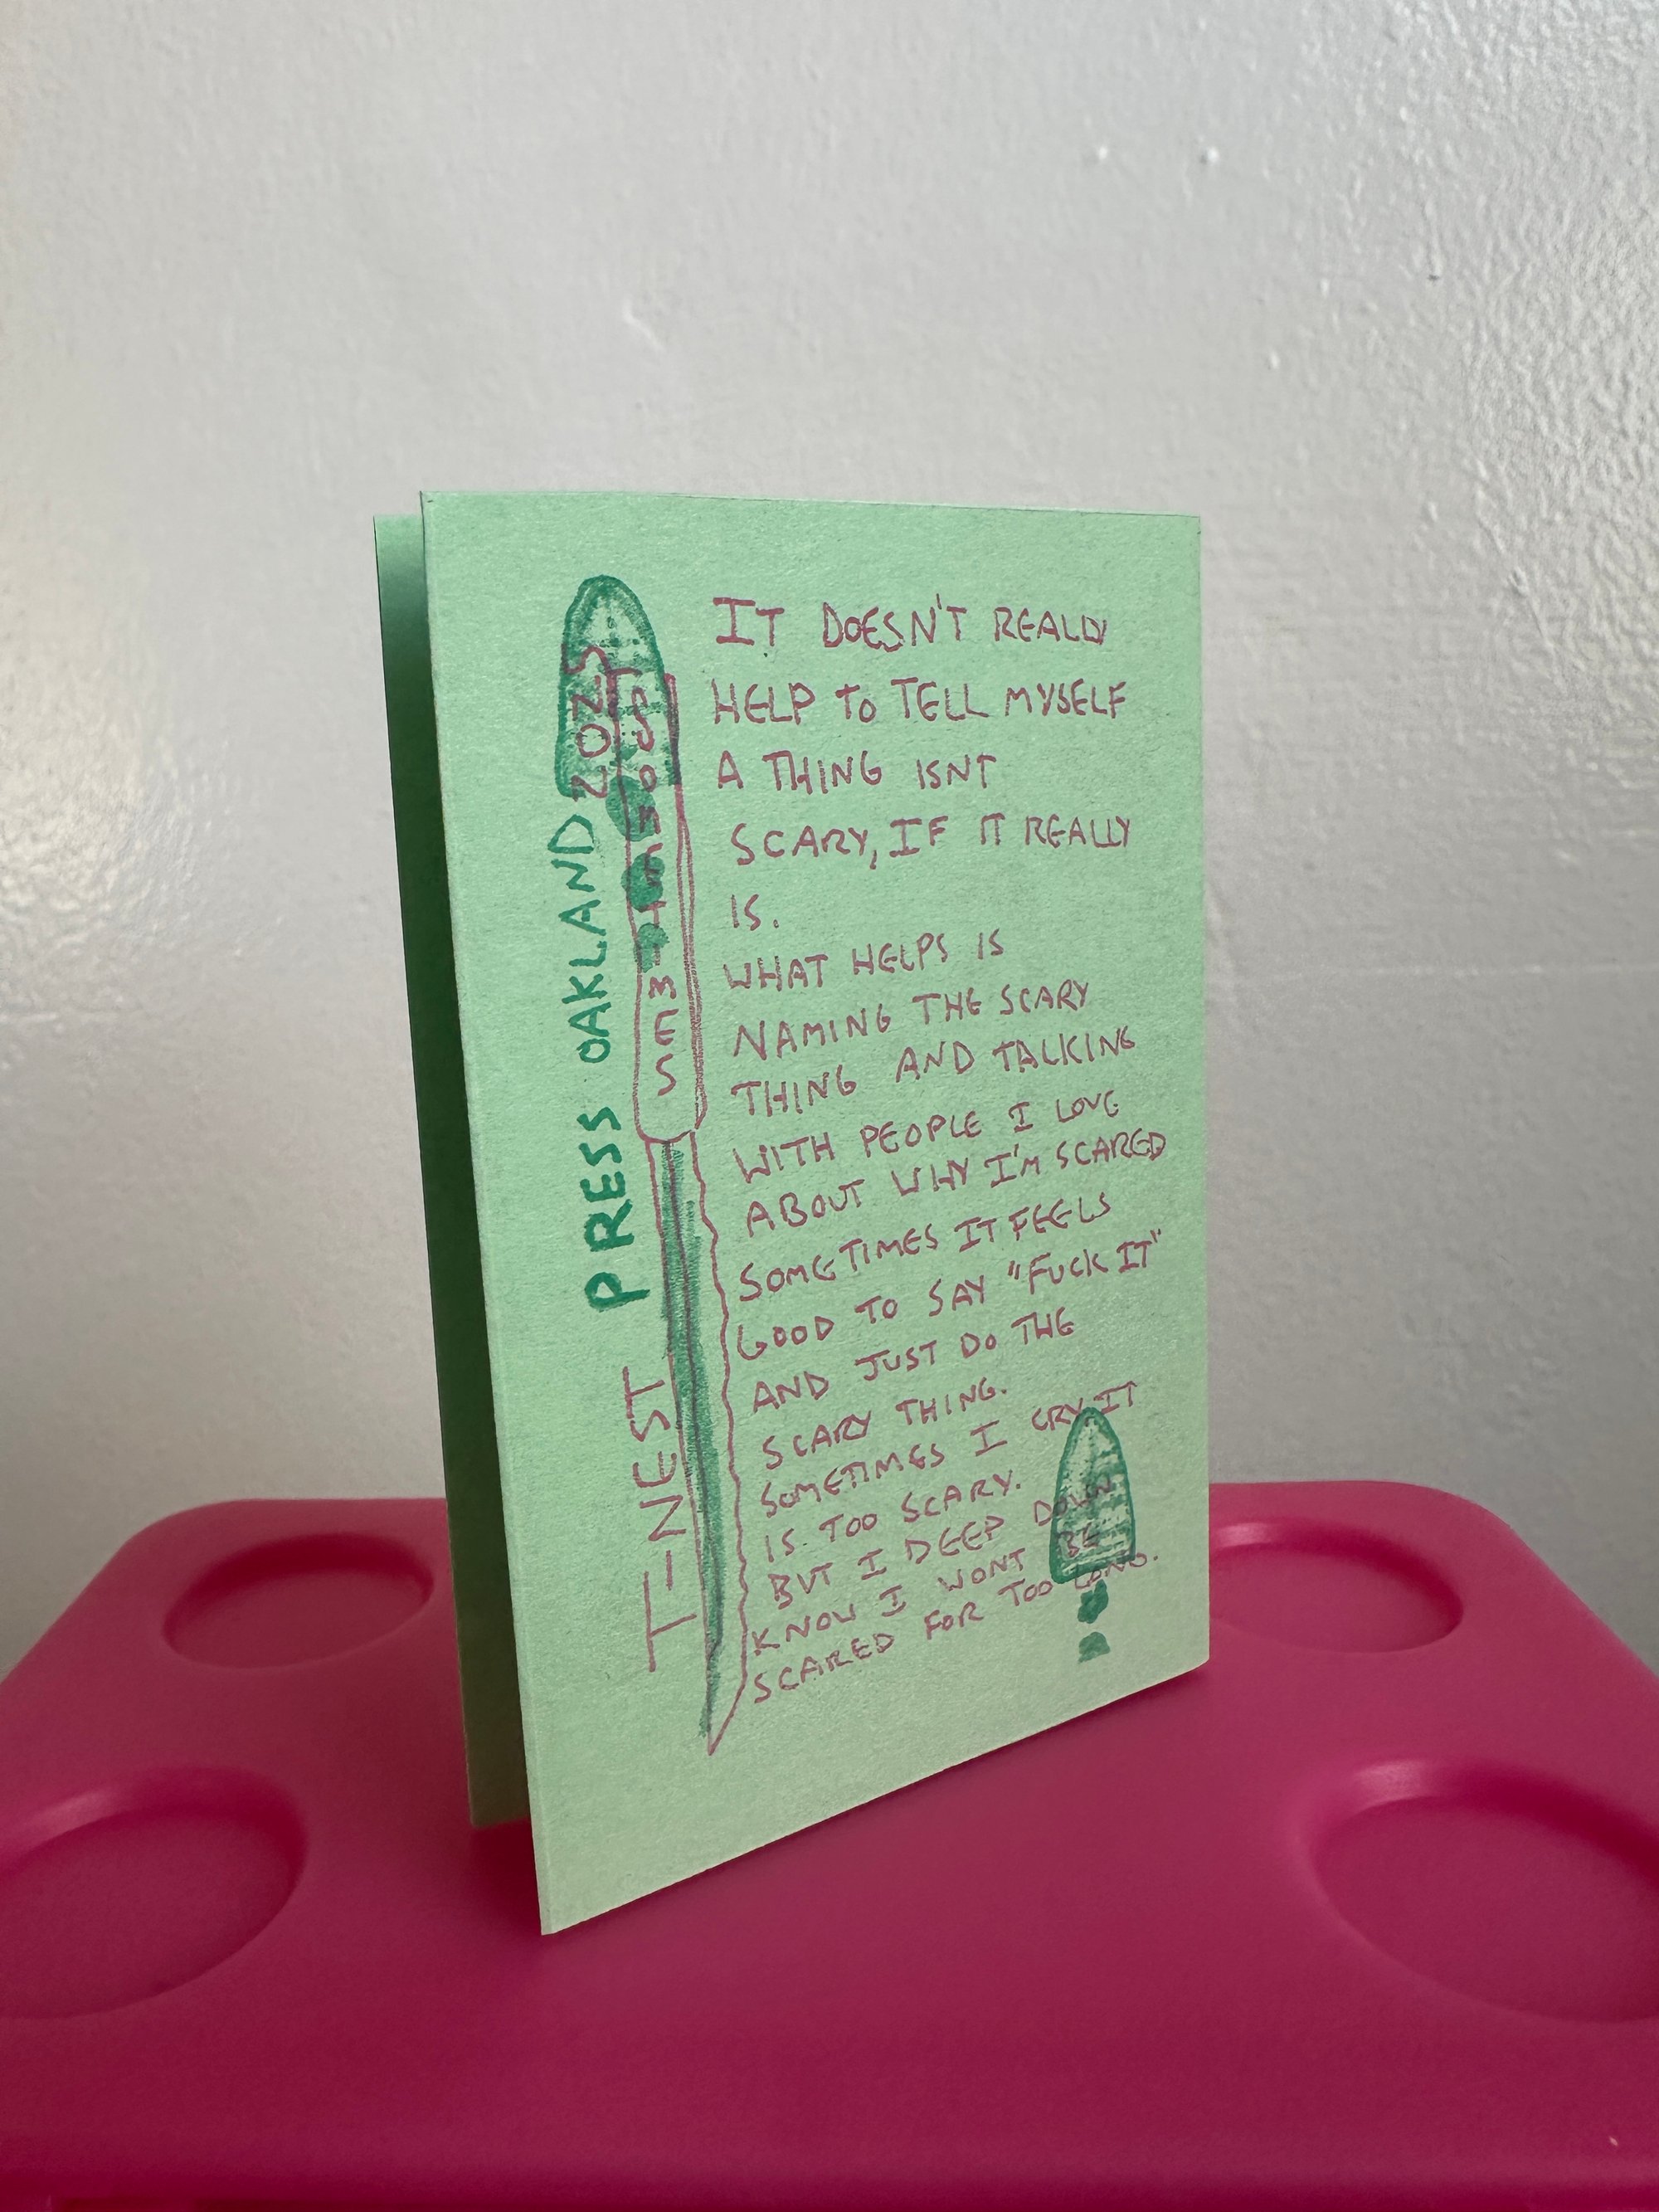 IT DOESN'T REALLY
HELP TO TELL MYSELF
A THING ISNT
SCARY, IF IT REALLY
IS.
WHAT HELPS IS
NAMING THE SCARY
THING AND TALKING
WITH PEOPLE I LOVE
ABOUT WHY I'M SCARED
SOMETIMES IT FEELS
GOOD TO SAY "FUCK IT"
AND JUST DO THE
SCARY THING.
SOMETIMES I CRY IT
IS TOO SCARY.
BUT I DEEP DOWN
KNOW I WONT BE
SCARED FOR TOO LONG.
T-NEST PRESS OAKLAND 2025